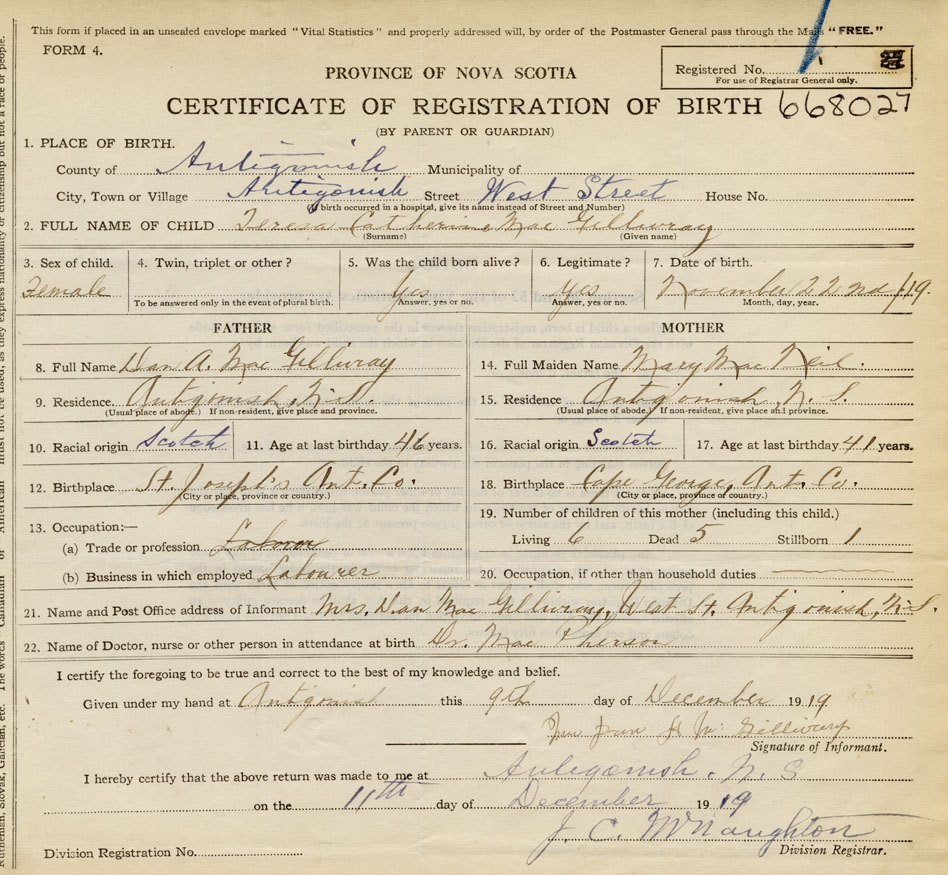 This form if placed in an unsealed envelope marked "Vital Statistics" and properly addressed will, by order of the Postmaster General pass through the Mails "FREE."
FORM 4.
Registered No.
For use of Registrar General only.
PROVINCE OF NOVA SCOTIA
CERTIFICATE OF REGISTRATION OF BIRTH 668027
(BY PARENT OR GUARDIAN)
1. PLACE OF BIRTH.
County of Antigonish Municipality of
City, Town or Village Antigonish Street West Street House No.
(If birth occurred in a hospital, give its name instead of Street and Number)
2. FULL NAME OF CHILD Teresa Catherine Mac Gillivray
(Surname) (Given name)
3. Sex of child. 4. Twin, triplet or other? 5. Was the child born alive? 6. Legitimate? 7. Date of birth.
Female Yes Yes November 22nd/19.
To be answered only in the event of plural birth. Answer, yes or no. Answer, yes or no. Month, day, year.
FATHER MOTHER
8. Full Name Dan A. Mac Gillivray 14. Full Maiden Name Mary Mac Neil.
9. Residence. Antigonish, N.S. 15. Residence Antigonish, N. S.
(Usual place of abode.) If non-resident, give place and province. (Usual place of abode.) If non-resident, give place and province.
10. Racial origin Scotch 11. Age at last birthday 46 years. 16. Racial origin Scotch 17. Age at last birthday 41 years.
12. Birthplace St. Joseph's Ant. Co. 18. Birthplace Cape George, Ant. Co.
(City or place, province or country.) (City or place, province or country.)
13. Occupation:— 19. Number of children of this mother (including this child.)
(a) Trade or profession Labour Living 6 Dead 5 Stillborn 1
(b) Business in which employed Labourer 20. Occupation, if other than household duties
21. Name and Post Office address of Informant Mrs. Dan Mac Gillivray, West St. Antigonish, N.S.
22. Name of Doctor, nurse or other person in attendance at birth Dr. Mac Pherson
I certify the foregoing to be true and correct to the best of my knowledge and belief.
Given under my hand at Antigonish this 9th day of December 1919
Gillivary
Signature of Informant.
I hereby certify that the above return was made to me at Antigonish, N. S
on the 11th day of December 1919
J. C. McNaughton
Division Registration No. Division Registrar.